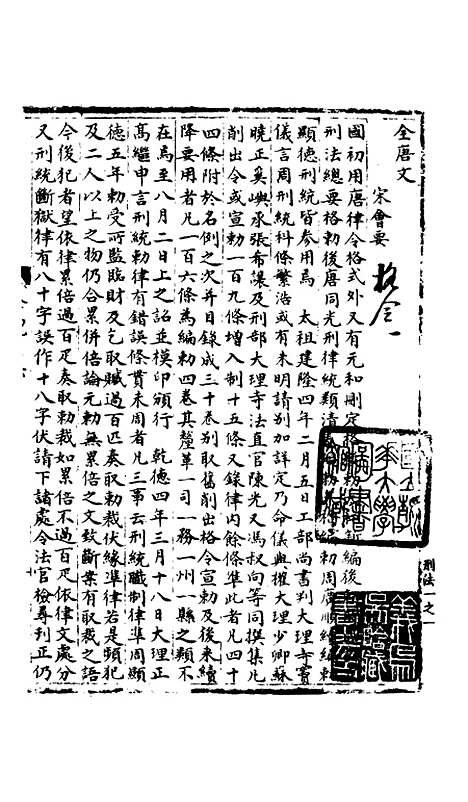 全唐文
宋會要
格令一
國初用唐律令格式外又有元和刪定格後勅太和新編後勅開成詳定
刑法總要格勅後唐同光刑律統類清泰編勅天福編勅周廣順續編勅
顯德刑統皆參用焉 太祖建隆四年二月五日工部尚書判大理寺竇
儀言周刑統科條繁浩或有未明請別加詳定乃命儀與權大理少卿蘇
曉正奚嶼承張希讓及刑部大理寺法直官陳光又馮叔向等同撰集凡
削出令或宣勅一百九條增入制十五條又錄律內餘條準此者凡四十
四條附於名例之次并目錄成三十卷別取舊削出格令宣勅及後來續
降要用者凡一百六條為編勅四卷其釐革一司一務一州一縣之類不
在焉至八月二日上之詔並模印頒行 乾德四年三月十八日大理正
高繼申言刑統勅律有錯誤條貫未周者凡三事云刑統職制律準周顯
德五年勅受所監臨財及乞取贓過百匹奏取勅裁伏緣準律若是頻犯
及二人以上之物仍合累併倍論元勅無累倍之文致斷案有取裁之語
今後犯者望依律累倍過百疋奏取勅裁如累倍不過百疋依律文處分
又刑統斷獄律有八十字誤作十八字伏請下諸處令法官檢尋刊正仍
刑法一之一